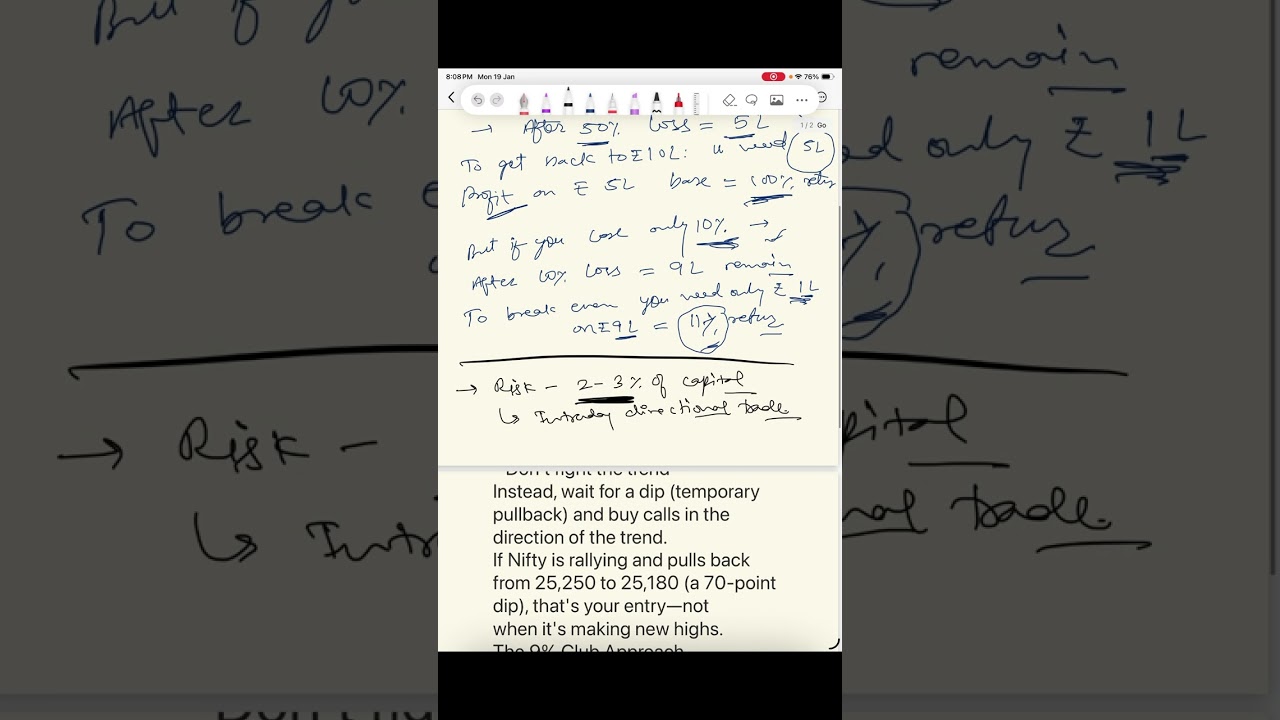 8:08 PM Mon 19 Jan
76%
1/2 Go
→ After 50% loss = 5L
To get back to ₹10L: u need 5L
Profit on ₹ 5L base = 100% retur
But if you lose only 10% →
After 10% loss = 9L remain
To break even you need only ₹ 1L
on ₹9L = 11% retur
→ Risk - 2-3% of capital
↳ Intraday directional trade
Don't fight the trend
Instead, wait for a dip (temporary
pullback) and buy calls in the
direction of the trend.
If Nifty is rallying and pulls back
from 25,250 to 25,180 (a 70-point
dip), that's your entry—not
when it's making new highs.
The 9% Club Approach